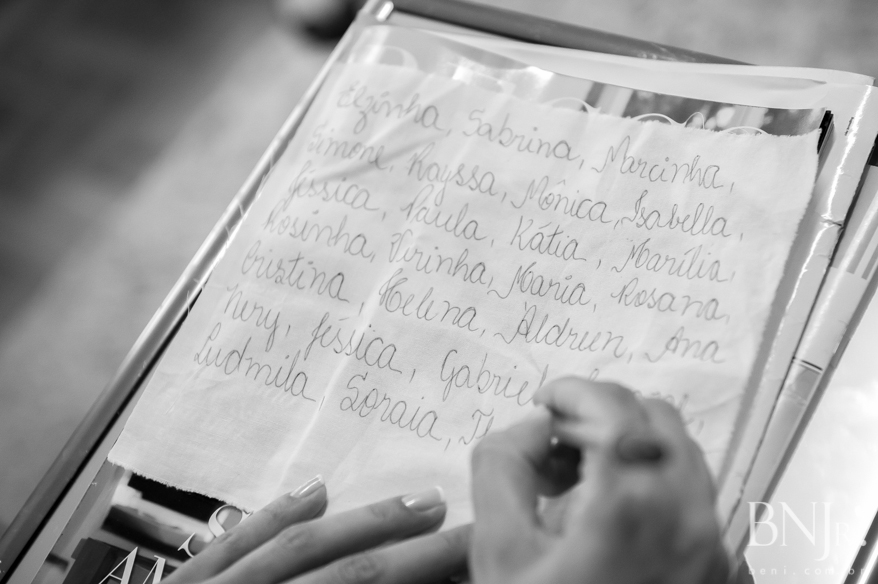 Elzinha, Sabrina, Marcinha,
Simone, Rayssa, Mônica, Isabella,
Jéssica, Paula, Kátia, Marília,
Rosinha, Virinha, Maria, Rosana,
Cristina, Helena, Aldrien, Ana
Nery, Jéssica, Gabriel
Ludmila, Soraia,
BNJ
beni.com.br